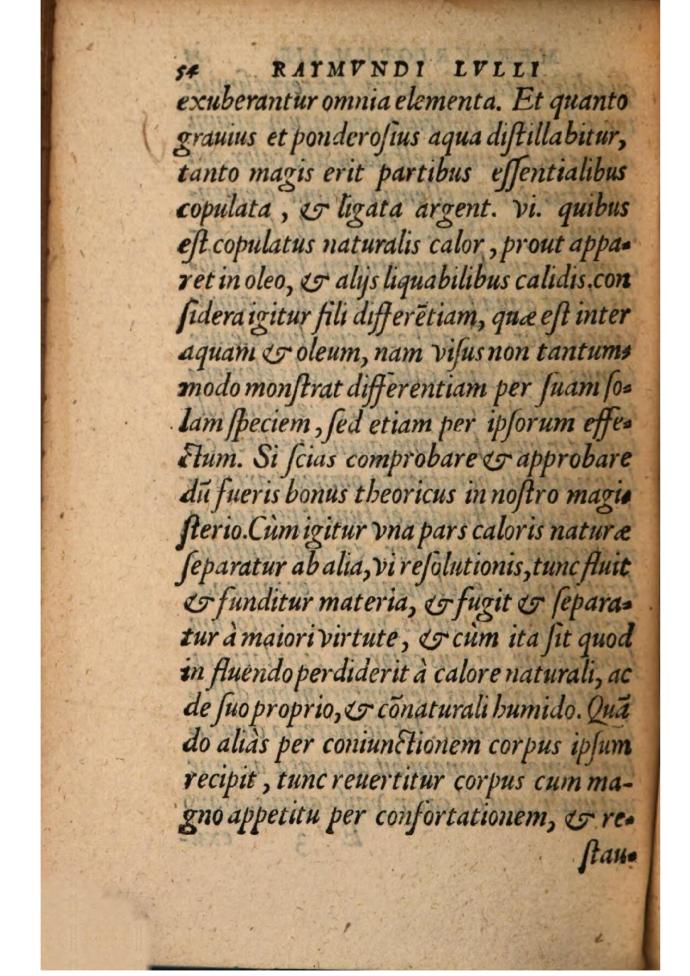 54 RAYMVNDI LVLLI
exuberantur omnia elementa. Et quanto
grauius et ponderoſius aqua diſtillabitur,
tanto magis erit partibus eſſentialibus
copulata, & ligata argent. vi. quibus
eſt copulatus naturalis calor, prout appa-
ret in oleo, & alijs liquabilibus calidis.con
ſidera igitur fili differētiam, quæ eſt inter
aquam & oleum, nam viſus non tantum-
modo monſtrat differentiam per ſuam ſo-
lam ſpeciem, ſed etiam per ipſorum effe-
ctum. Si ſcias comprobare & approbare
dū fueris bonus theoricus in noſtro magi-
ſterio. Cùm igitur vna pars caloris naturæ
ſeparatur ab alia, vi reſolutionis, tunc fluit
& funditur materia, & fugit & ſepara-
tur à maiori virtute, & cùm ita ſit quod
in fluendo perdiderit à calore naturali, ac
de ſuo proprio, & cōnaturali humido. Quā
do aliàs per coniunctionem corpus ipſum
recipit, tunc reuertitur corpus cum ma-
gno appetitu per confortationem, & re-
ſtau-